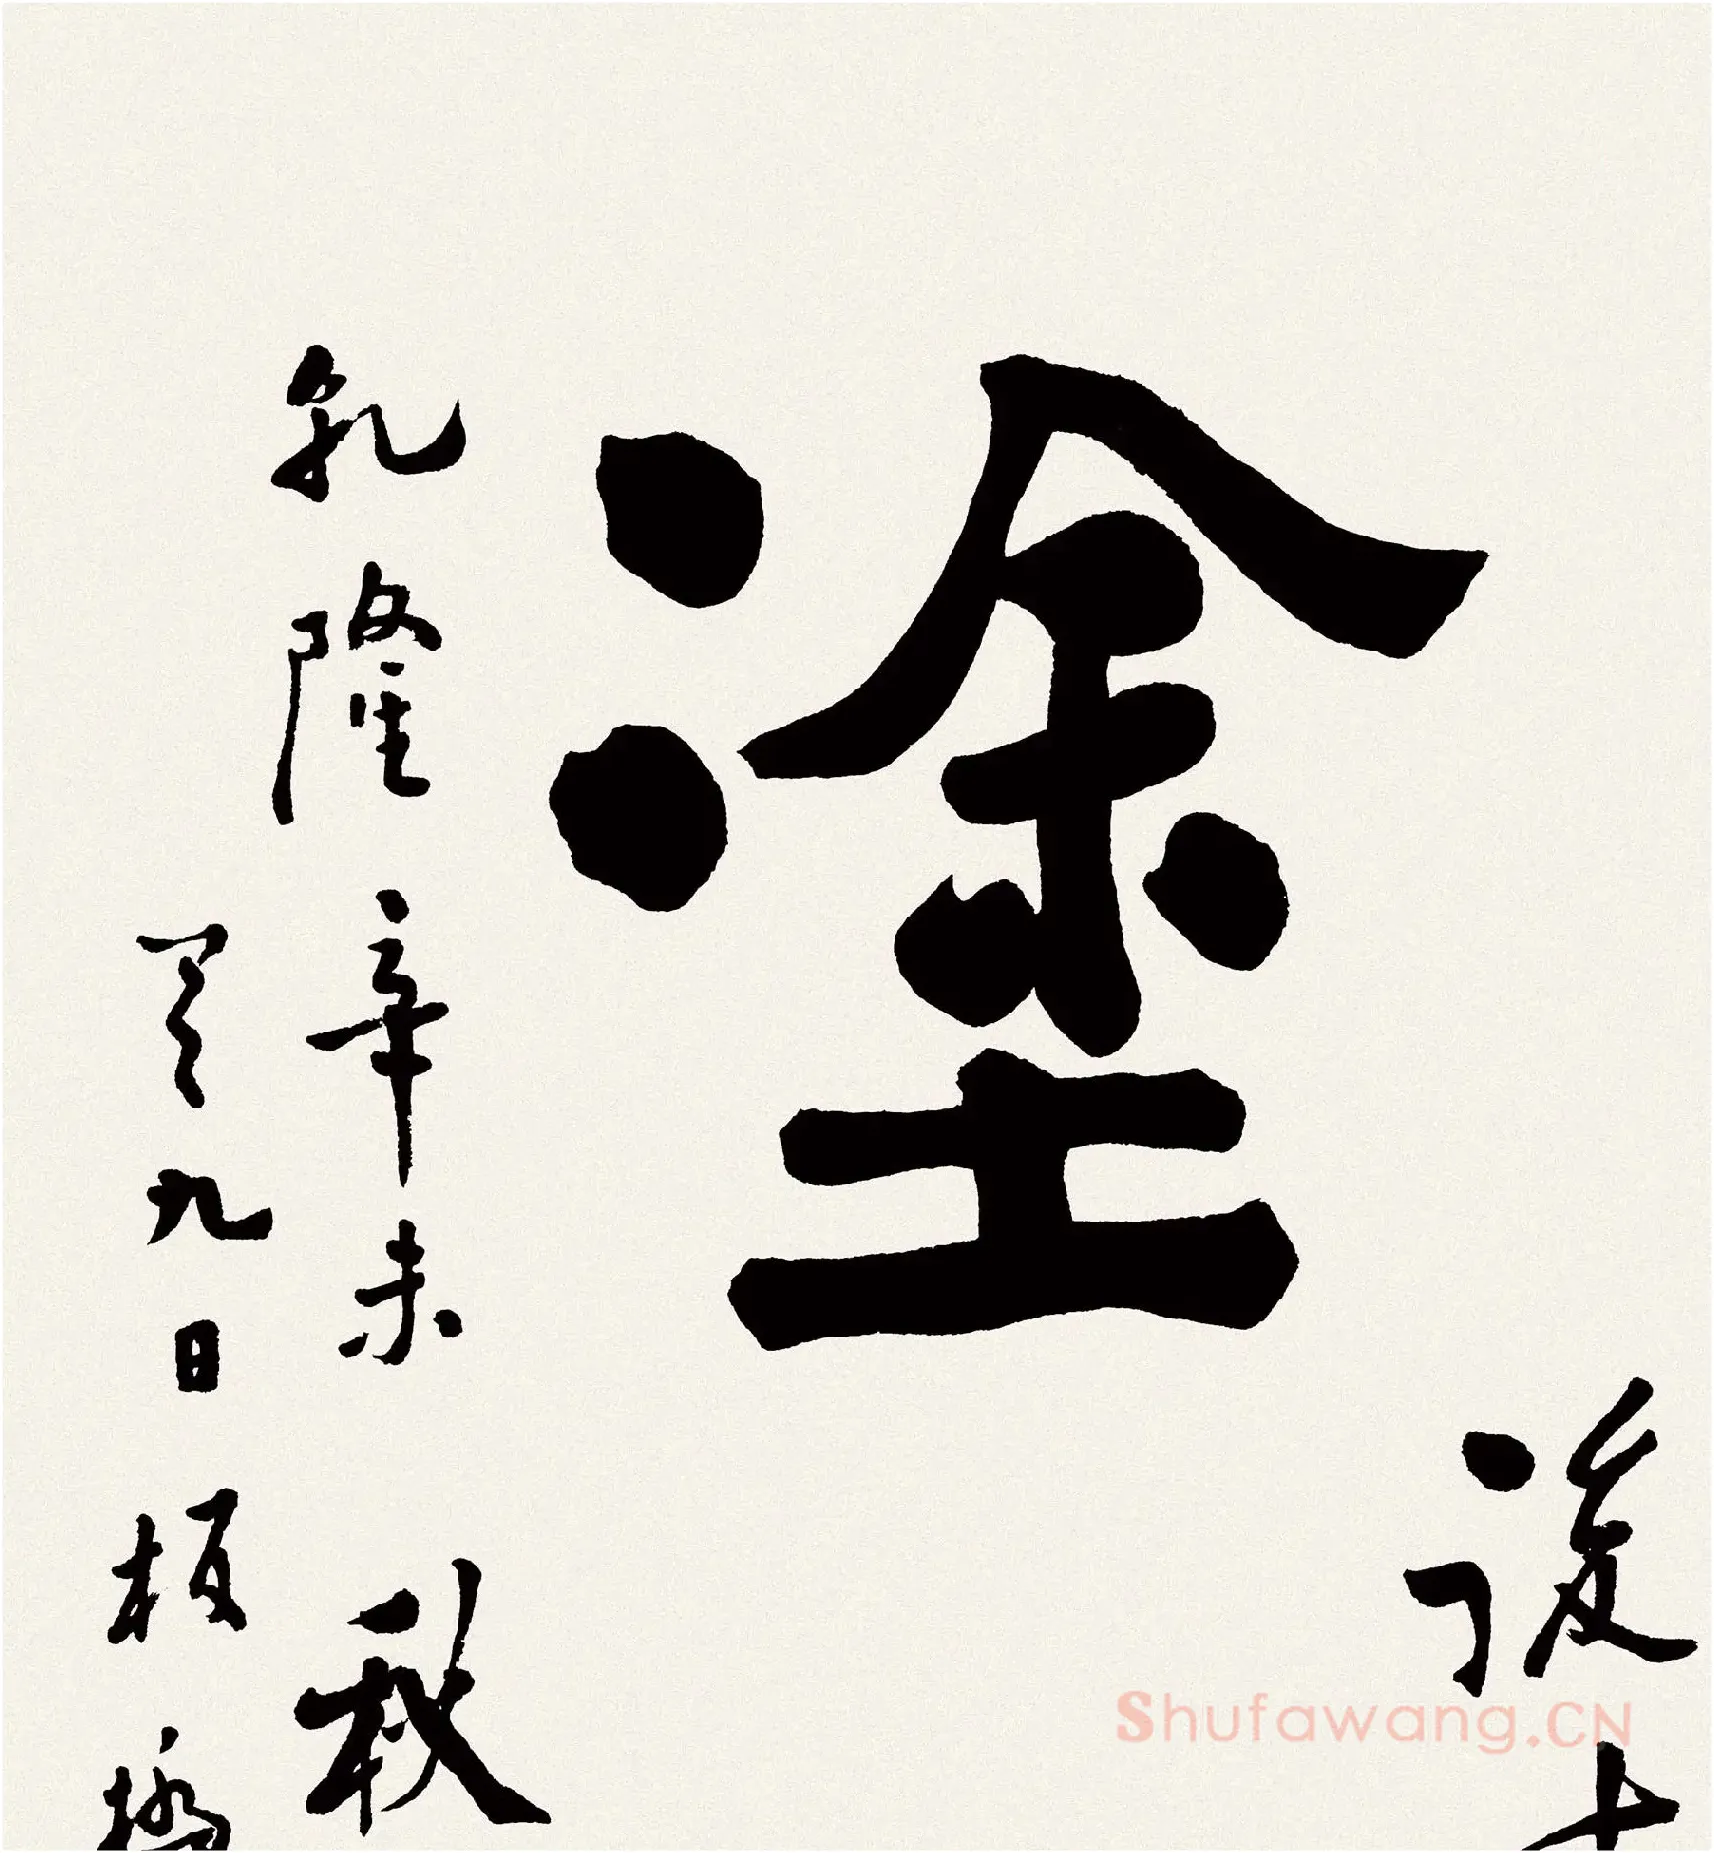 後
塗
乾隆辛未秋
九日板橋
Shufawang.CN